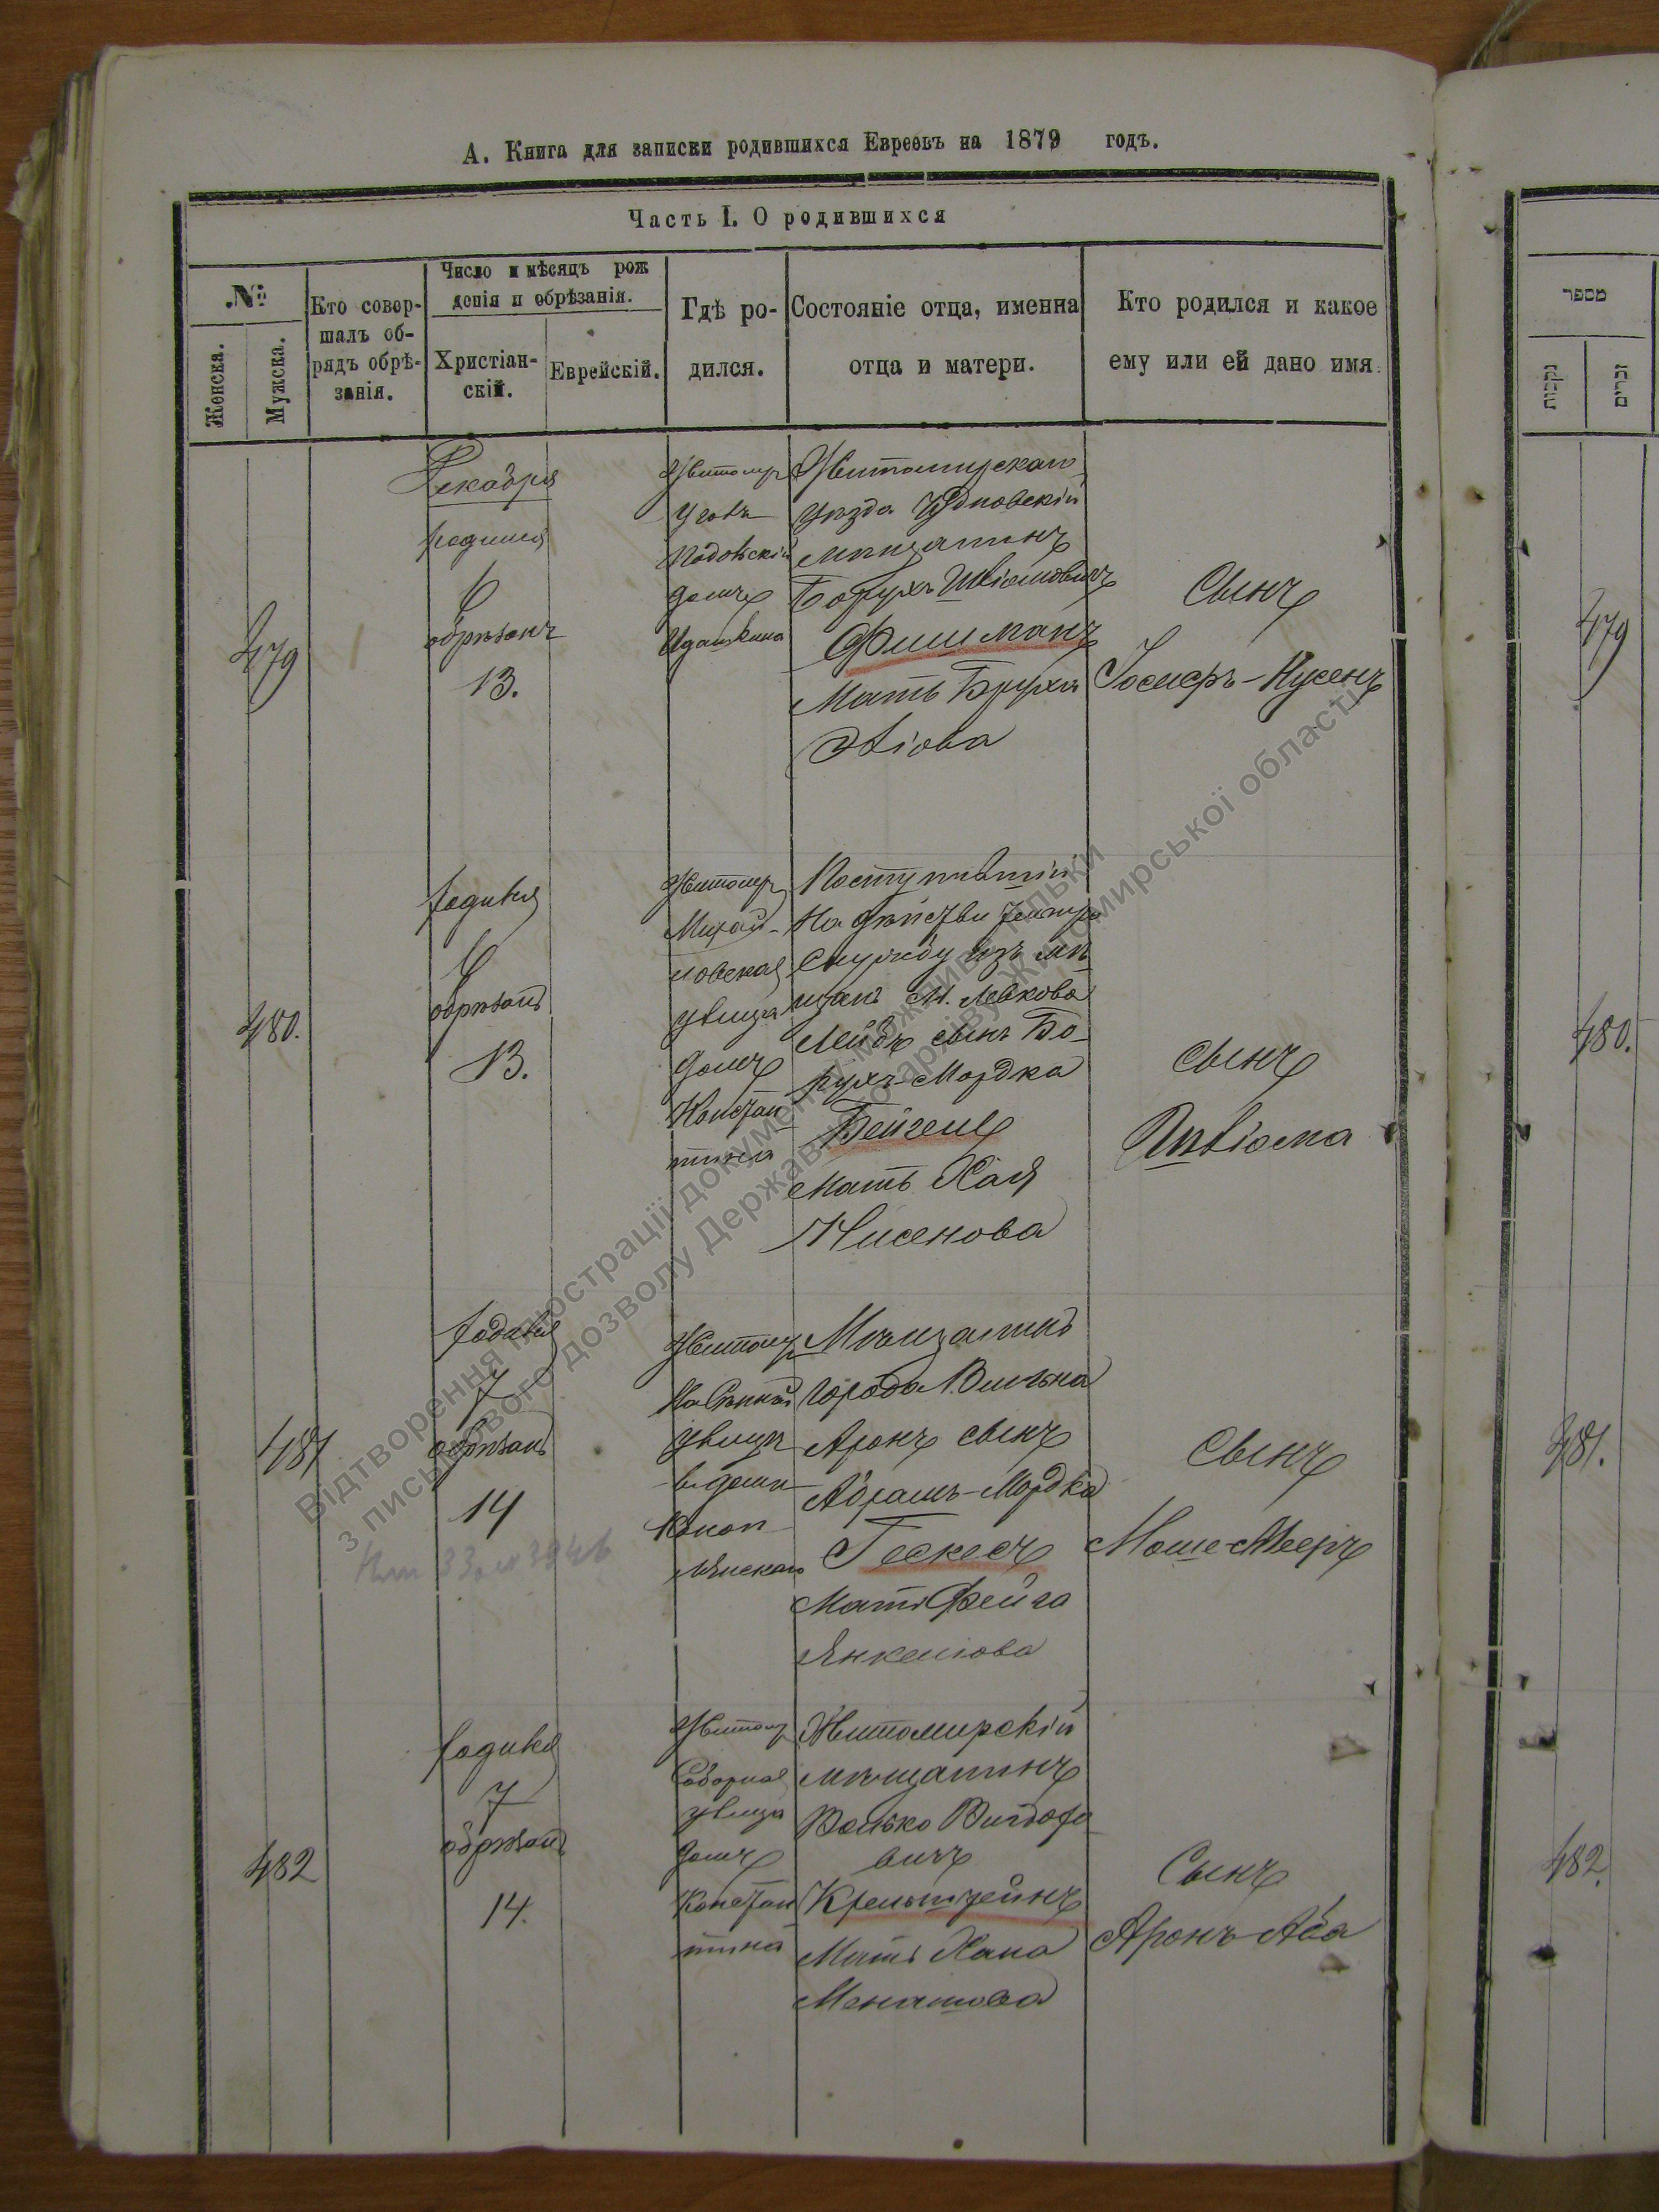 А. Книга для записки родившихся Евреевъ на 1879 годъ.
Часть I. О родившихся
№
Женска.
Мужска.
Кто совер-
шалъ об-
рядъ обрѣ-
занія.
Число и мѣсяцъ рож
денія и обрѣзанія.
Христіан-
скій.
Еврейскій.
Гдѣ ро-
дился.
Состояніе отца, именна
отца и матери.
Кто родился и какое
ему или ей дано имя.
מספר
נקבות
זכרים
479
Декабря
родился
6
обрѣзанъ
13.
Житомир
домъ
Житомирскаго
уѣзда Чудновскій
мѣщанинъ
Борухъ Шліомовичъ
Фишманъ
Мать Брухa
Эліова
Сынъ
Іосифъ-Нусенъ
479
480.
родился
6
обрѣзанъ
13.
Житомир
Михай-
ловская
улица
домъ
Констан
тина
Поступившій
На дѣйствительную
Службу изъ мѣ
щанъ М. Левкова
Лейбъ сынъ Бо-
рухъ-Мордка
Бейгель
мать Хая
Нисенова
сынъ
Шліома
480.
481
родился
7
обрѣзанъ
14
Житомир
На Сѣнной
улицѣ
в домѣ
Мѣщанинъ
города Вильна
Аронъ сынъ
Абрамъ-Мордка
Гескесъ
Мать Фейга
Янкелюва
Сынъ
Моше-Мееръ
481.
482
родился
7
обрѣзанъ
14.
Житомир
Соборная
улица
домъ
Констан
тина
Житомирскій
мѣщанинъ
Волько Вигдоро
вичъ
Крельштейнъ
Мать Хана
Менашова
Сынъ
Аронъ Аба
482.
Відтворення ілюстрації документу можливе тільки
з письмового дозволу Державного архіву Житомирської області